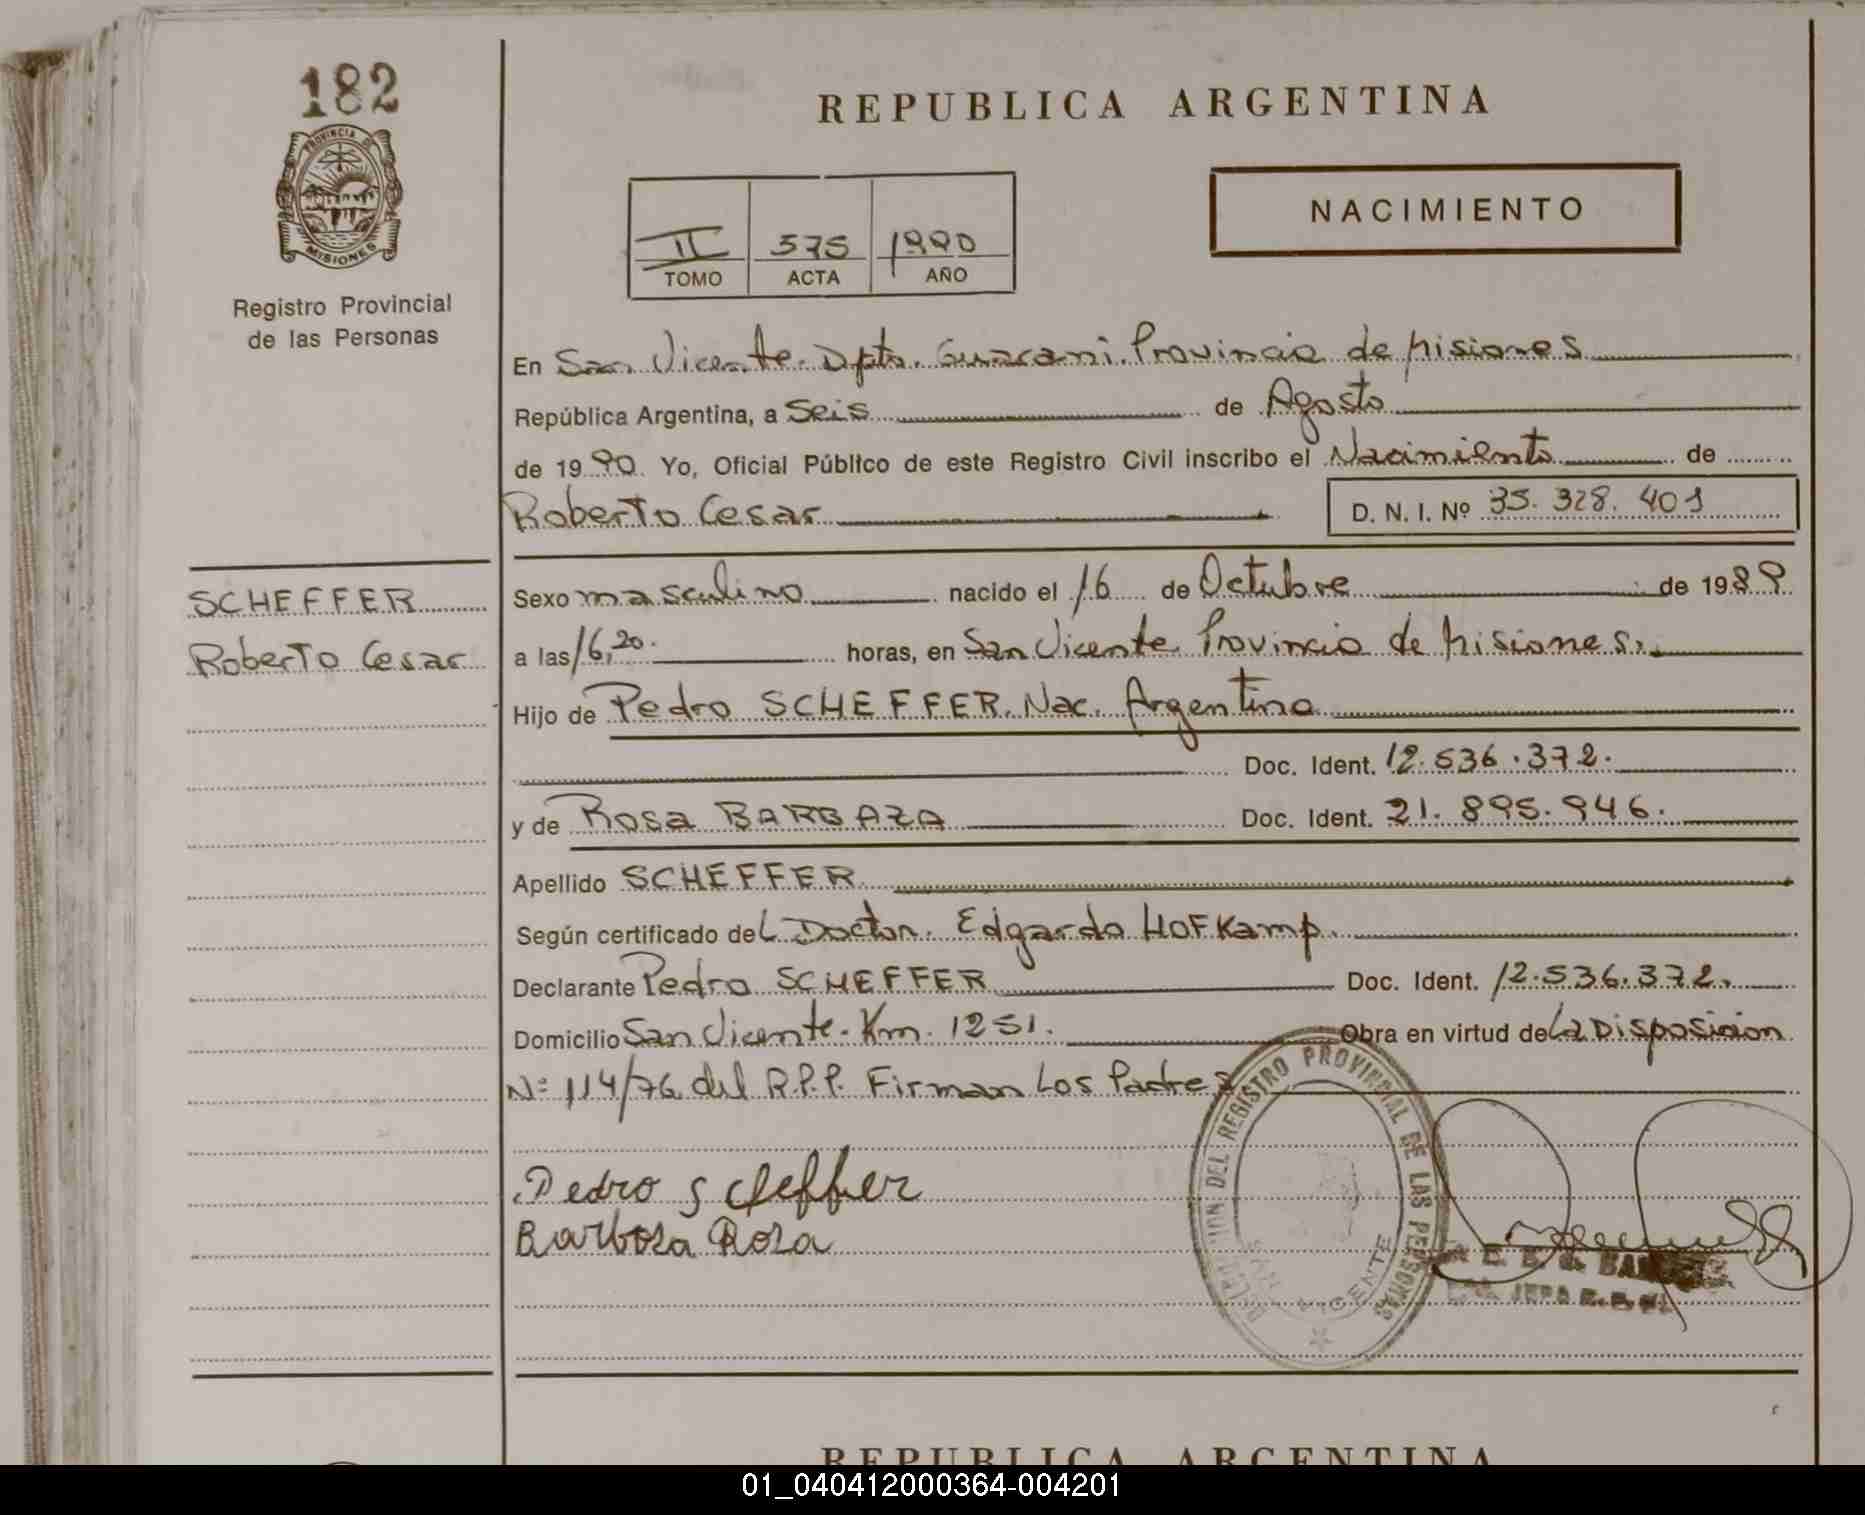 182
PROVINCIA DE
MISIONES
Registro Provincial
de las Personas
REPUBLICA ARGENTINA
NACIMIENTO
II 575 1990
TOMO ACTA AÑO
En San Vicente. Dpto. Guarani. Provincia de Misiones
República Argentina, a Seis de Agosto
de 1990 Yo, Oficial Público de este Registro Civil inscribo el Nacimiento de
Roberto Cesar D. N. I. Nº 35.328.401
SCHEFFER
Roberto Cesar
Sexo masculino nacido el 16 de Octubre de 1989
a las 16,20. horas, en San Vicente Provincia de Misiones.
Hijo de Pedro SCHEFFER. Nac. Argentina
Doc. Ident. 12.536.372.
y de Rosa BARBAZA Doc. Ident. 21.895.946.
Apellido SCHEFFER
Según certificado del Doctor. Edgardo HOFKamp.
Declarante Pedro SCHEFFER Doc. Ident. 12.536.372.
Domicilio San Vicente. Km. 1251. Obra en virtud de La Disposicion
Nº 114/76 del R.P.P. Firman Los Padres
Pedro Scheffer
Barboza Rosa
DEL REGISTRO PROVINCIAL DE LAS PERSONAS
SAN VICENTE
REPUBLICA ARGENTINA
01_040412000364-004201